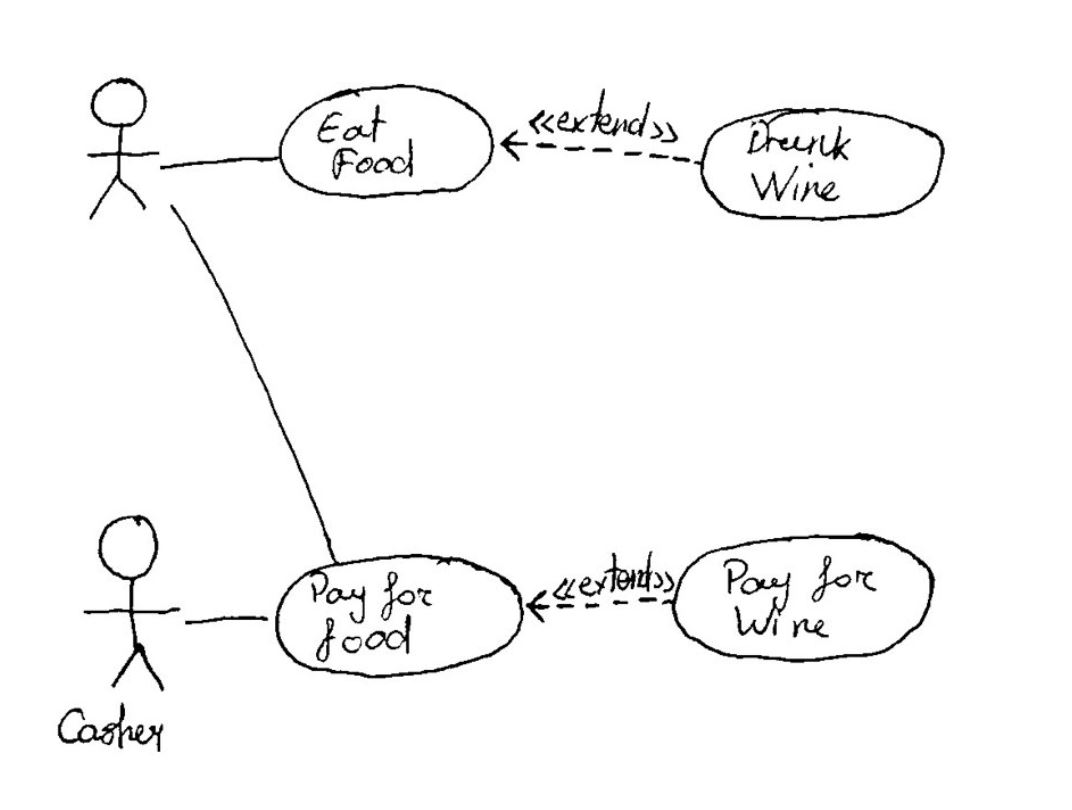 Eat
Food
<<extend>>
Drunk
Wine
Pay for
food
<<extend>>
Pay for
Wine
Casher